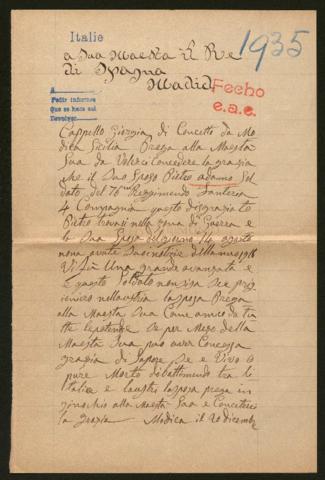 Italie
1935
a Sua Maestà il Re
di Spagna
Madrid
Fecho
e.a.e.
A
Pedir informes
Que se hace cal
Devolver
Cappello Giorgia di Concetto da Mo
dica Sicilia Prega alla Maestà
Sua da Volerci Concedere la grazia
che il Suo Sposo Pietro adamo Sol
dato del 76 Reggimendo Fanteria
4 Compagnia questo disgraziato
Pietro trovasi nella zona di Guerra e
la Sua Sposa giorno 14 agosto
nona avute Sue notizie
Una grande avanzata e
questo Soldato non si sa Se e pri
cieniero la sposa Prega
alla Maestà Sua Come amico da tu
tte le potenze Se per Mezo della
Maestà Sua può aver Concessa
grazia di Sapere Se e Vivo o
pure Morto dibattimendo tra l
Italia e laustria la sposa prega in
ginochio alla Maestà Sua e Concetere
la grazia Modica il 20 dicembre